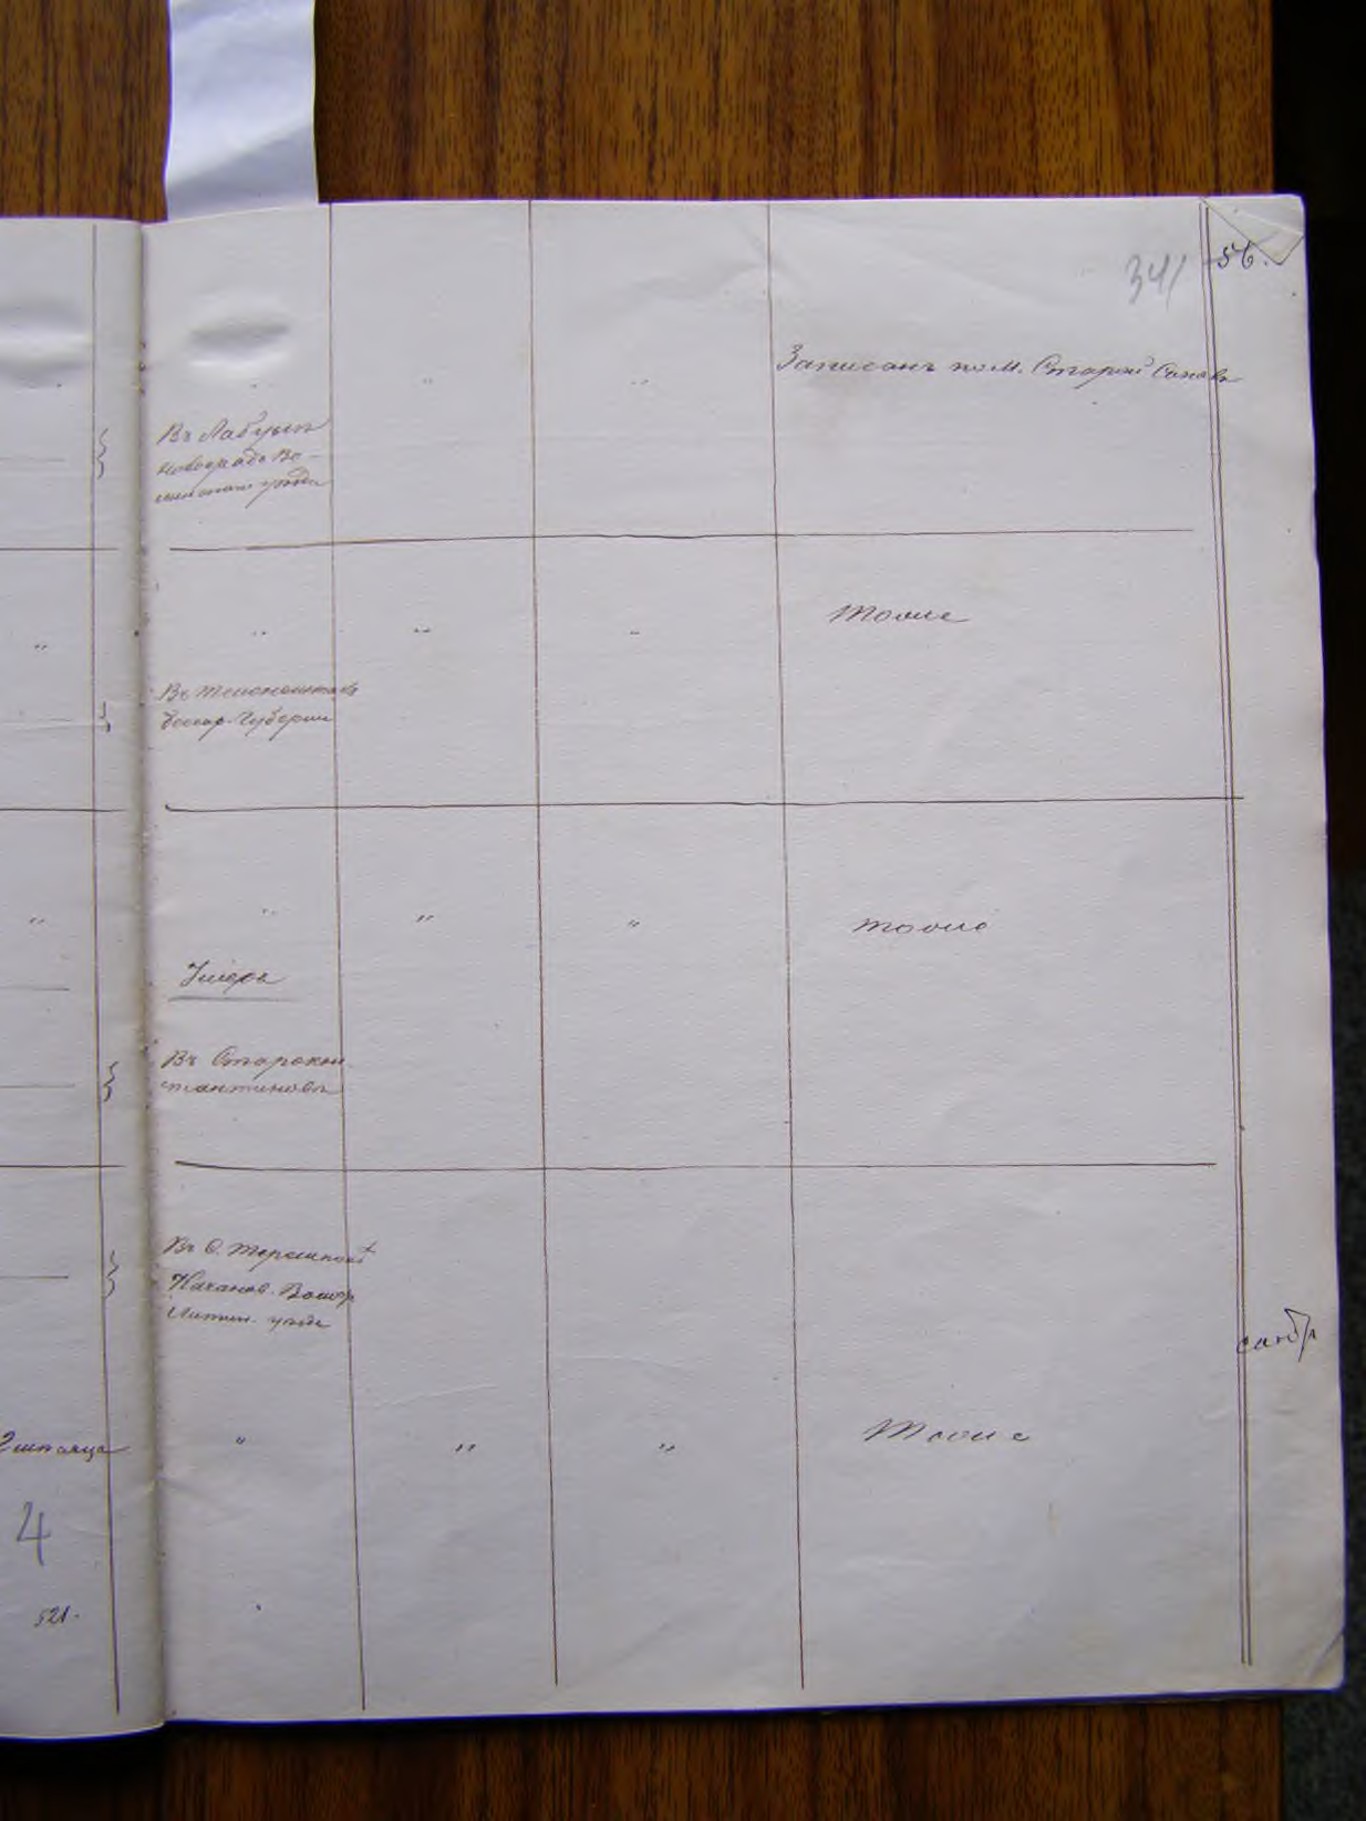 341 56.
Записанъ по м. Старой Синявѣ
Въ Лабунѣ
Новоградъ Во-
лынскаго уѣзда
Тоже
Въ
Бессар. Губерніи
тоже
Умеръ
Въ Старокон-
стантиновѣ
Въ С. Терешполѣ
Литин. уѣзда
Тоже
4
521.